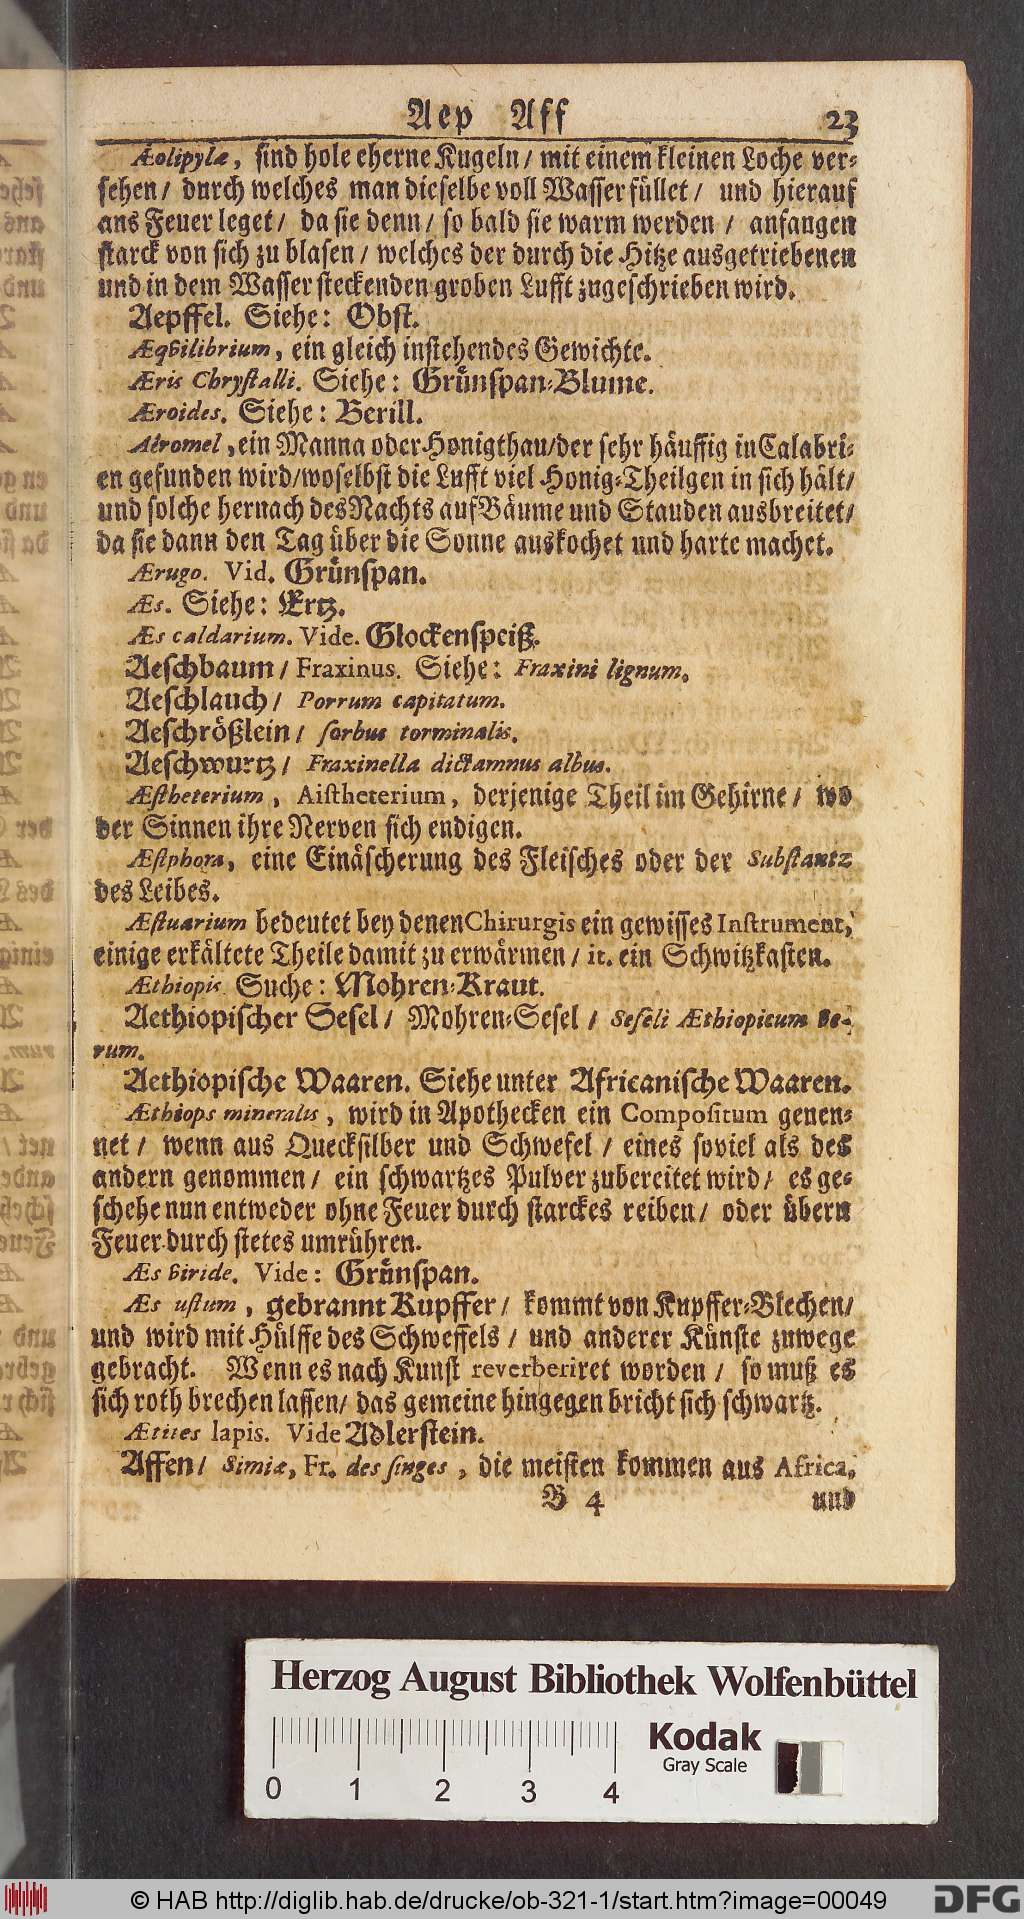 Aep Aff 23
Æolipylæ, sind hole eherne Kugeln/ mit einem kleinen Loche ver-
sehen/ durch welches man dieselbe voll Wasser füllet/ und hierauf
ans Feuer leget/ da sie denn/ so bald sie warm werden/ anfangen
starck von sich zu blasen/ welches der durch die Hitze ausgetriebenen
und in dem Wasser steckenden groben Lufft zugeschrieben wird.
Aepffel. Siehe: Obst.
Æqvilibrium, ein gleich instehendes Gewichte.
Æris Chrystalli. Siehe: Grünspan-Blume.
Æroides. Siehe: Berill.
Aeromel, ein Manna oder Honigthau/der sehr häuffig in Calabri-
en gefunden wird/woselbst die Lufft viel Honig-Theilgen in sich hält/
und solche hernach des Nachts auf Bäume und Stauden ausbreitet/
da sie dann den Tag über die Sonne auskochet und harte machet.
Ærugo. Vid. Grünspan.
Æs. Siehe: Ertz.
Æs caldarium. Vide. Glockenspeiß.
Aeschbaum/ Fraxinus. Siehe: Fraxini lignum.
Aeschlauch/ Porrum capitatum.
Aeschrößlein/ sorbus torminalis.
Aeschwurtz/ Fraxinella dictamnus albus.
Æstheterium, Aistheterium, derjenige Theil im Gehirne/ wo
der Sinnen ihre Nerven sich endigen.
Æstphora, eine Einäscherung des Fleisches oder der Substantz
des Leibes.
Æstuarium bedeutet bey denen Chirurgis ein gewisses Instrument,
einige erkältete Theile damit zu erwärmen/ it. ein Schwitzkasten.
Æthiopis Suche: Mohren-Kraut.
Aethiopischer Sesel/ Mohren-Sesel/ Seseli Æthiopicum ve-
rum.
Aethiopische Waaren. Siehe unter Africanische Waaren.
Æthiops mineralis, wird in Apothecken ein Compositum genen-
net/ wenn aus Quecksilber und Schwefel/ eines soviel als des
andern genommen/ ein schwartzes Pulver zubereitet wird/ es ge-
schehe nun entweder ohne Feuer durch starckes reiben/ oder übern
Feuer durch stetes umrühren.
Æs viride. Vide: Grünspan.
Æs ustum, gebrannt Kupffer/ kommt von Kupffer-Blechen/
und wird mit Hülffe des Schweffels/ und anderer Künste zuwege
gebracht. Wenn es nach Kunst reverberiret worden/ so muß es
sich roth brechen lassen/ das gemeine hingegen bricht sich schwartz.
Ætites lapis. Vide Adlerstein.
Affen/ Simiæ, Fr. des singes, die meisten kommen aus Africa,
B 4 und
Herzog August Bibliothek Wolfenbüttel
Kodak
Gray Scale
0 1 2 3 4
© HAB http://diglib.hab.de/drucke/ob-321-1/start.htm?image=00049
DFG